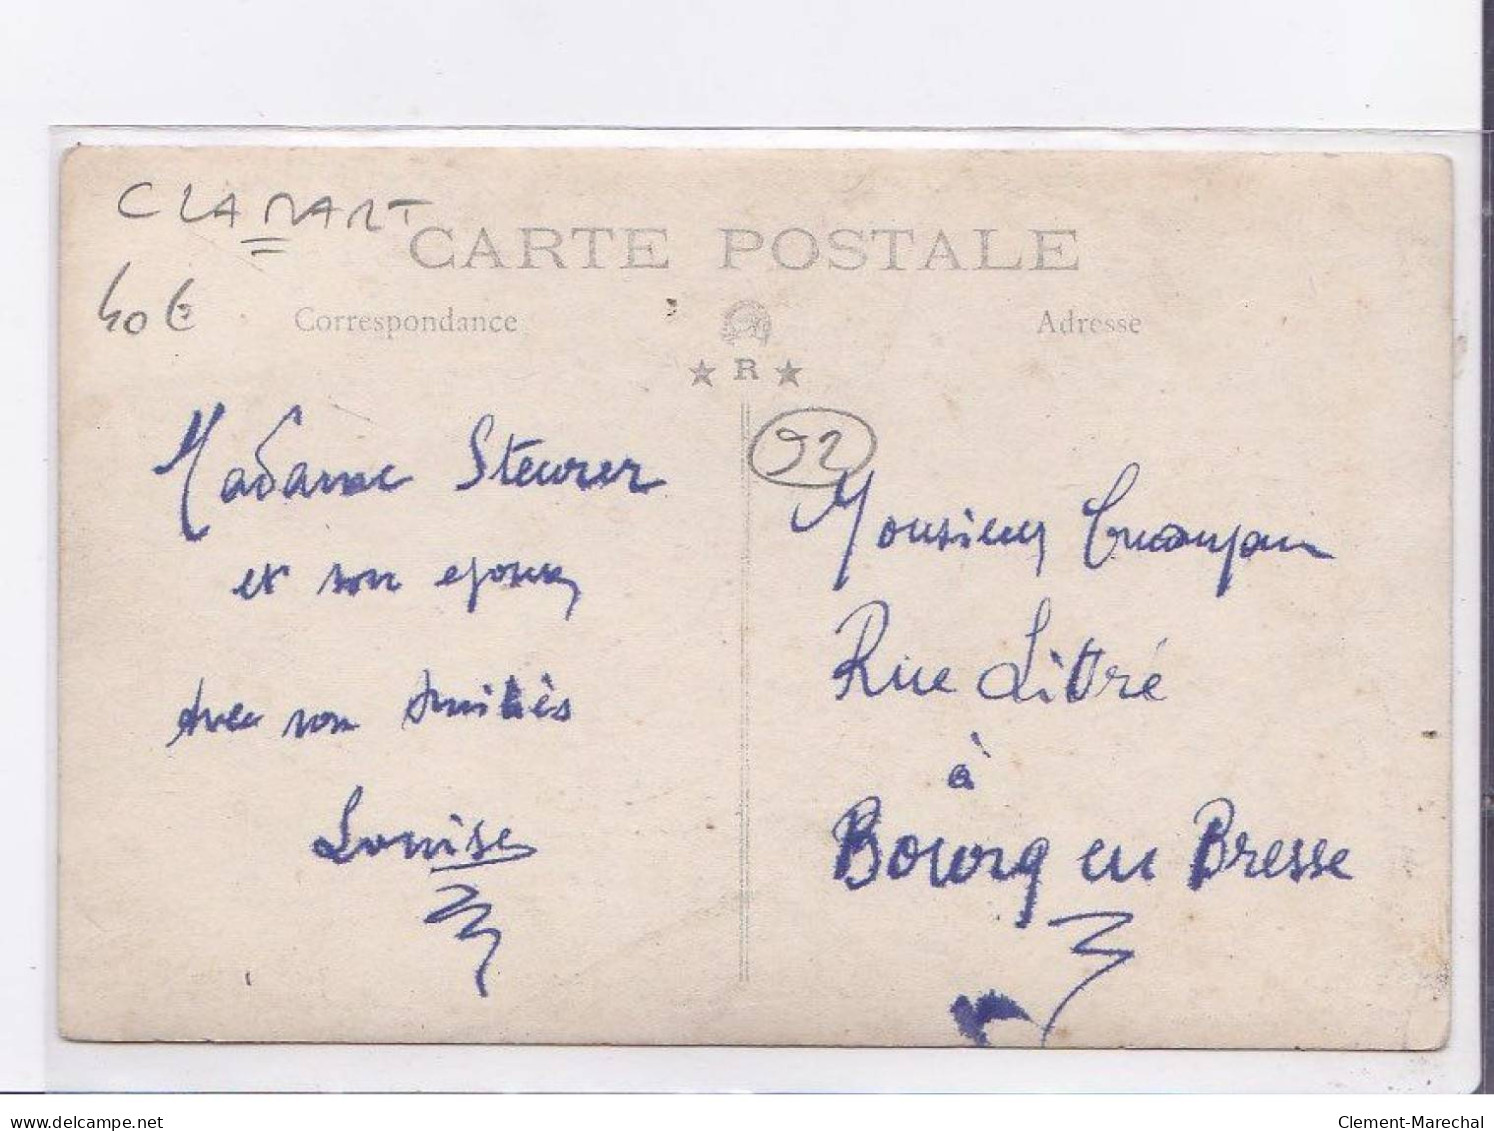 CLAMART
CARTE POSTALE
40 €
Correspondance
Adresse
R
92
Madame Steurer
et son epoux
Avec son Amitiès
Louise
Monsieur
Rue Littré
à
Bourg en Bresse
delcampe.net
Clement-Marechal